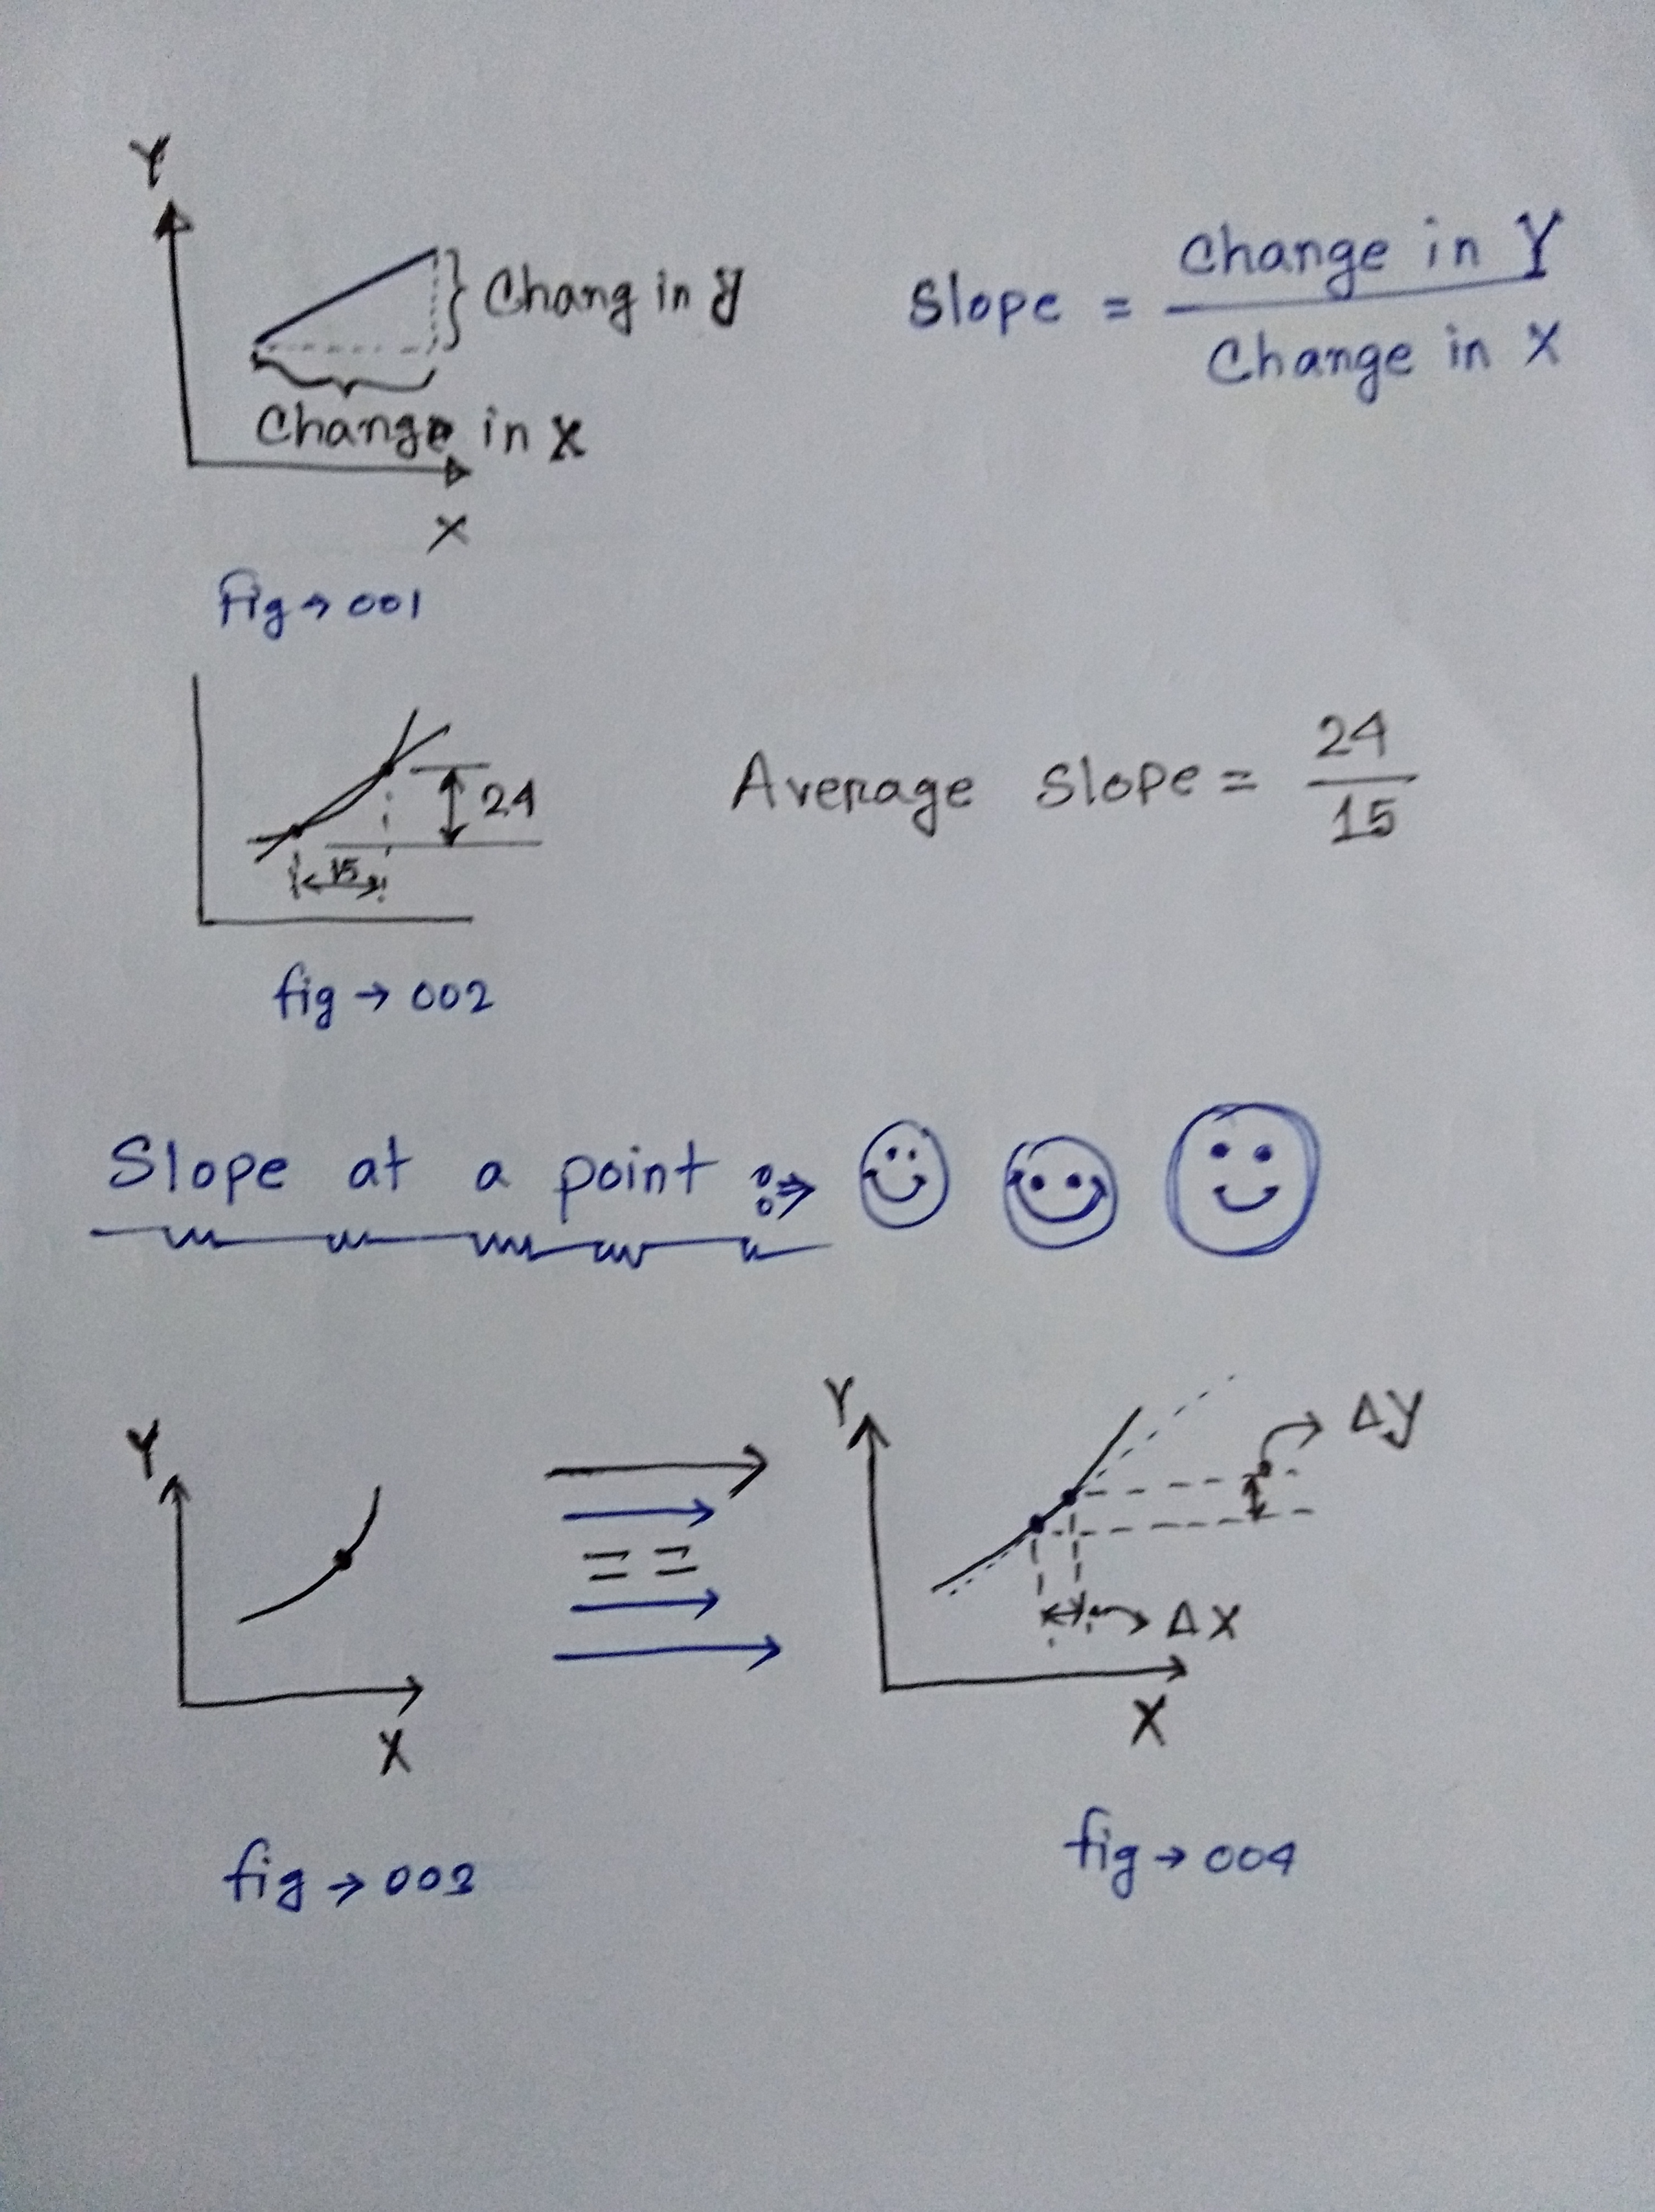 Y
Chang in y
Change in x
X
Slope = Change in Y
Change in X
fig → 001
24
15
Average Slope = 24
15
fig → 002
Slope at a point :⇒
Y
X
fig → 003
Y
Δy
Δx
X
fig → 004